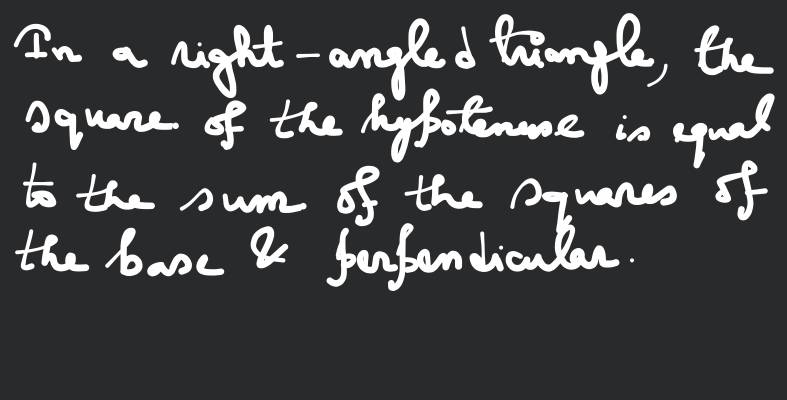 In a right-angled triangle, the
square of the hypotenuse is equal
to the sum of the squares of
the base & perpendicular.